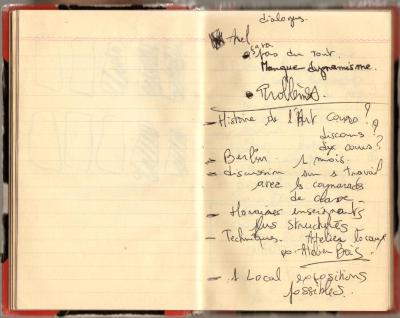 dialogue.
Axel
ça va
pas du tout.
Manque dynamisme.
Problèmes.
- Histoire de l'Art
discours ?
dix cours ?
- Berlin 1 mois.
- discussion sur s travail
avec les camarades
de classe -
- Horaires enseignants
plus structurés
- Techniques. Atelier
pas Atelier Bois.
- 1 Local expositions
possibles.